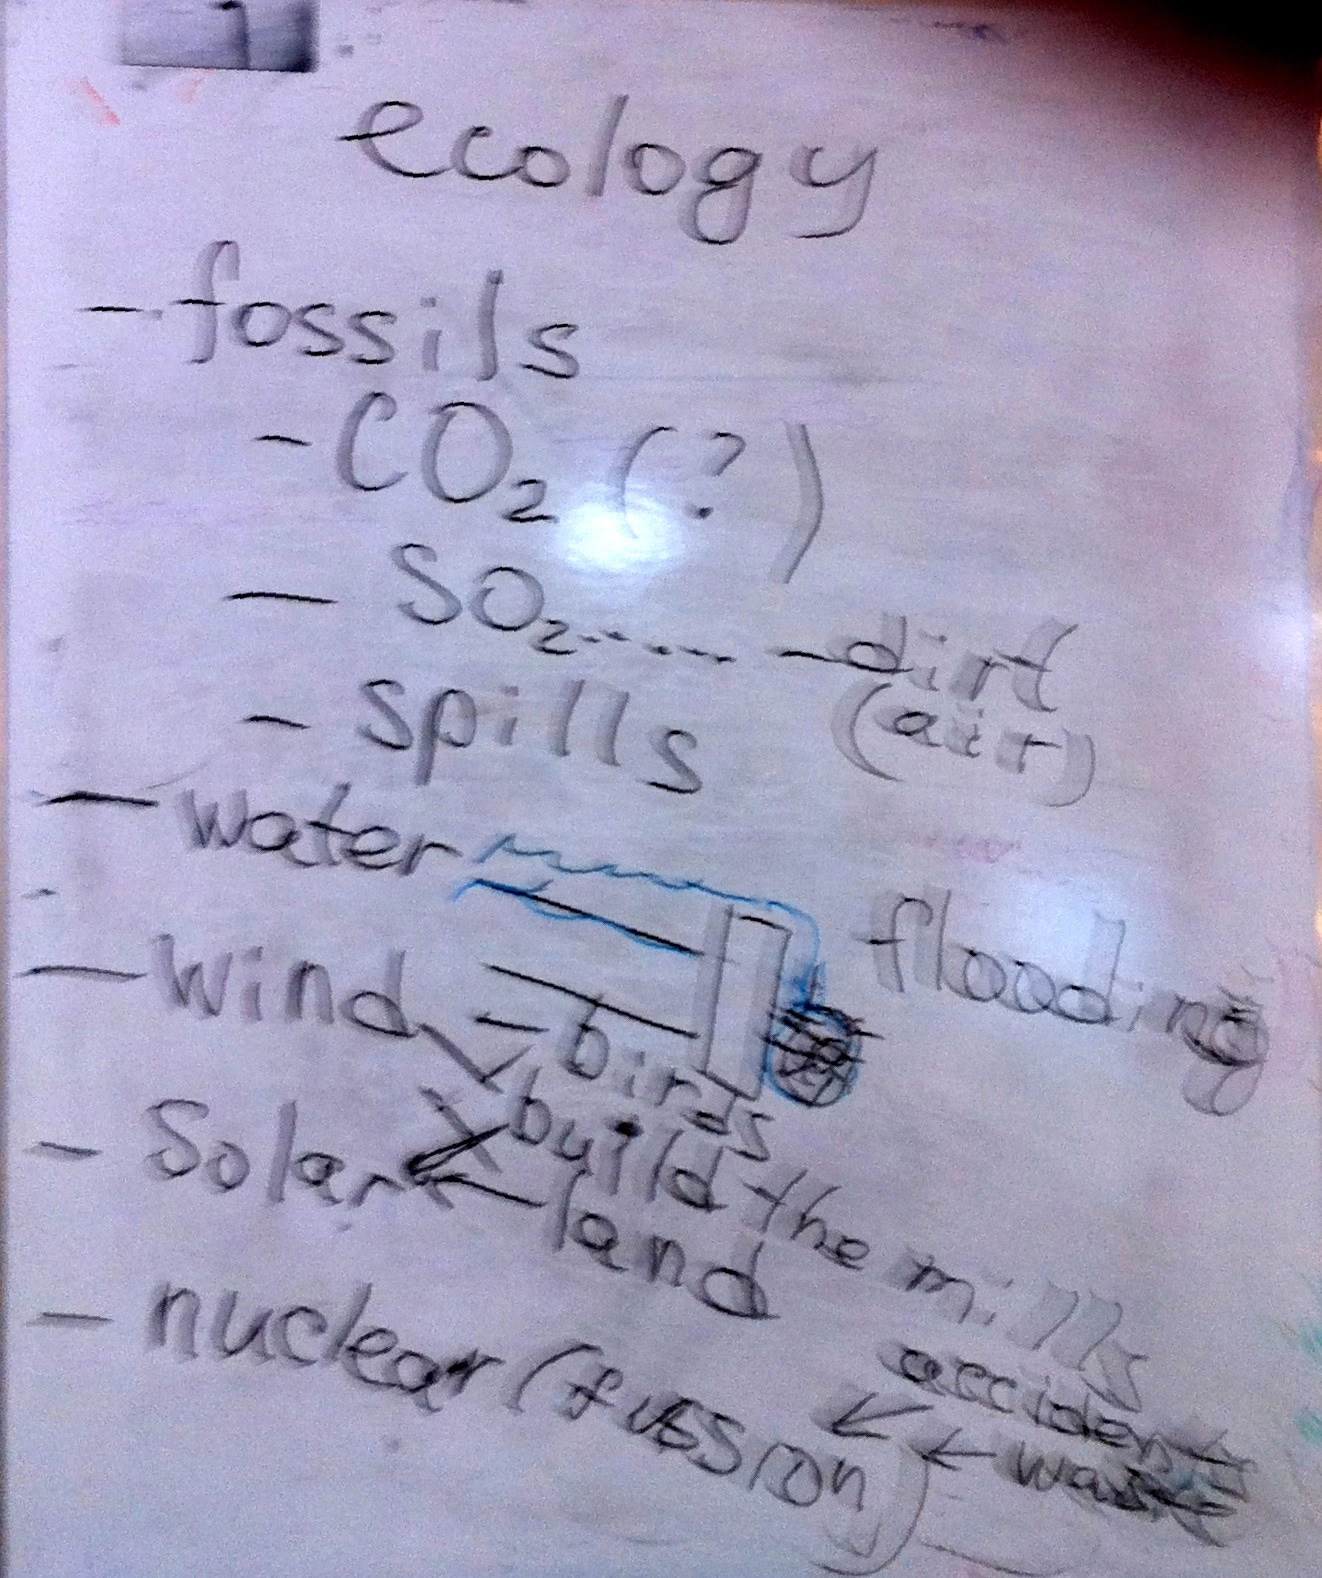 ecology
- fossils
- CO₂ (?)
- SO₂..... - dirt
(air)
- spills
- water
flooding
- wind - birds
build the mills
- Solar - land
- nuclear (fussion)
accidents
waste